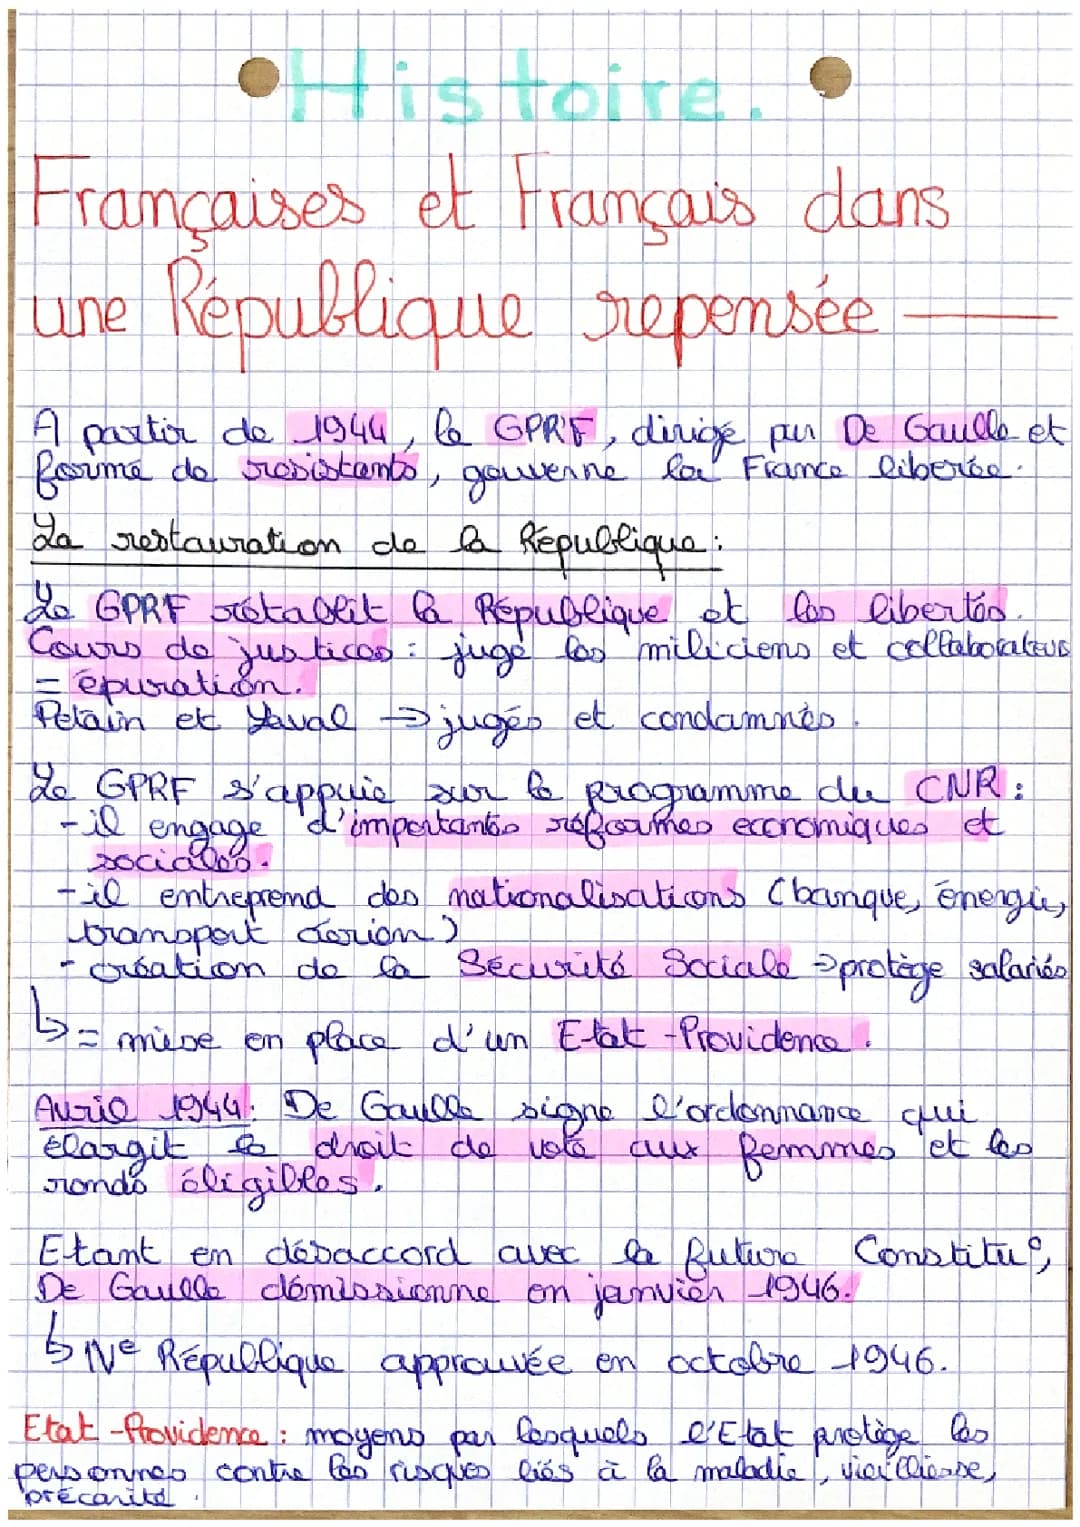 Histoire.
Françaises et Français dans
une République repensée
A partir de 1944, le GPRF, dirigé par De Gaulle et
formé de résistants, gouverne la France libérée.
La restauration de la République :
Le GPRF rétablit la République et les libertés.
Cours de justices : juge les miliciens et collaborateurs
= épuration.
Pétain et Laval → jugés et condamnés.
Le GPRF s'appuie sur le programme du CNR :
- il engage d'importantes réformes économiques et
sociales.
- il entreprend des nationalisations (banque, énergie,
transport aérien)
- création de la Sécurité Sociale → protège salariés
↳ = mise en place d'un Etat-Providence.
Avril 1944 : De Gaulle signe l'ordonnance qui
élargit le droit de vote aux femmes et les
rends éligibles.
Etant en désaccord avec la future Constitu°,
De Gaulle démissionne en janvier 1946.
↳ IVe République approuvée en octobre 1946.
Etat-Providence : moyens par lesquels l'Etat protège les
personnes contre les risques liés à la maladie, vieilliesse,
précarité.